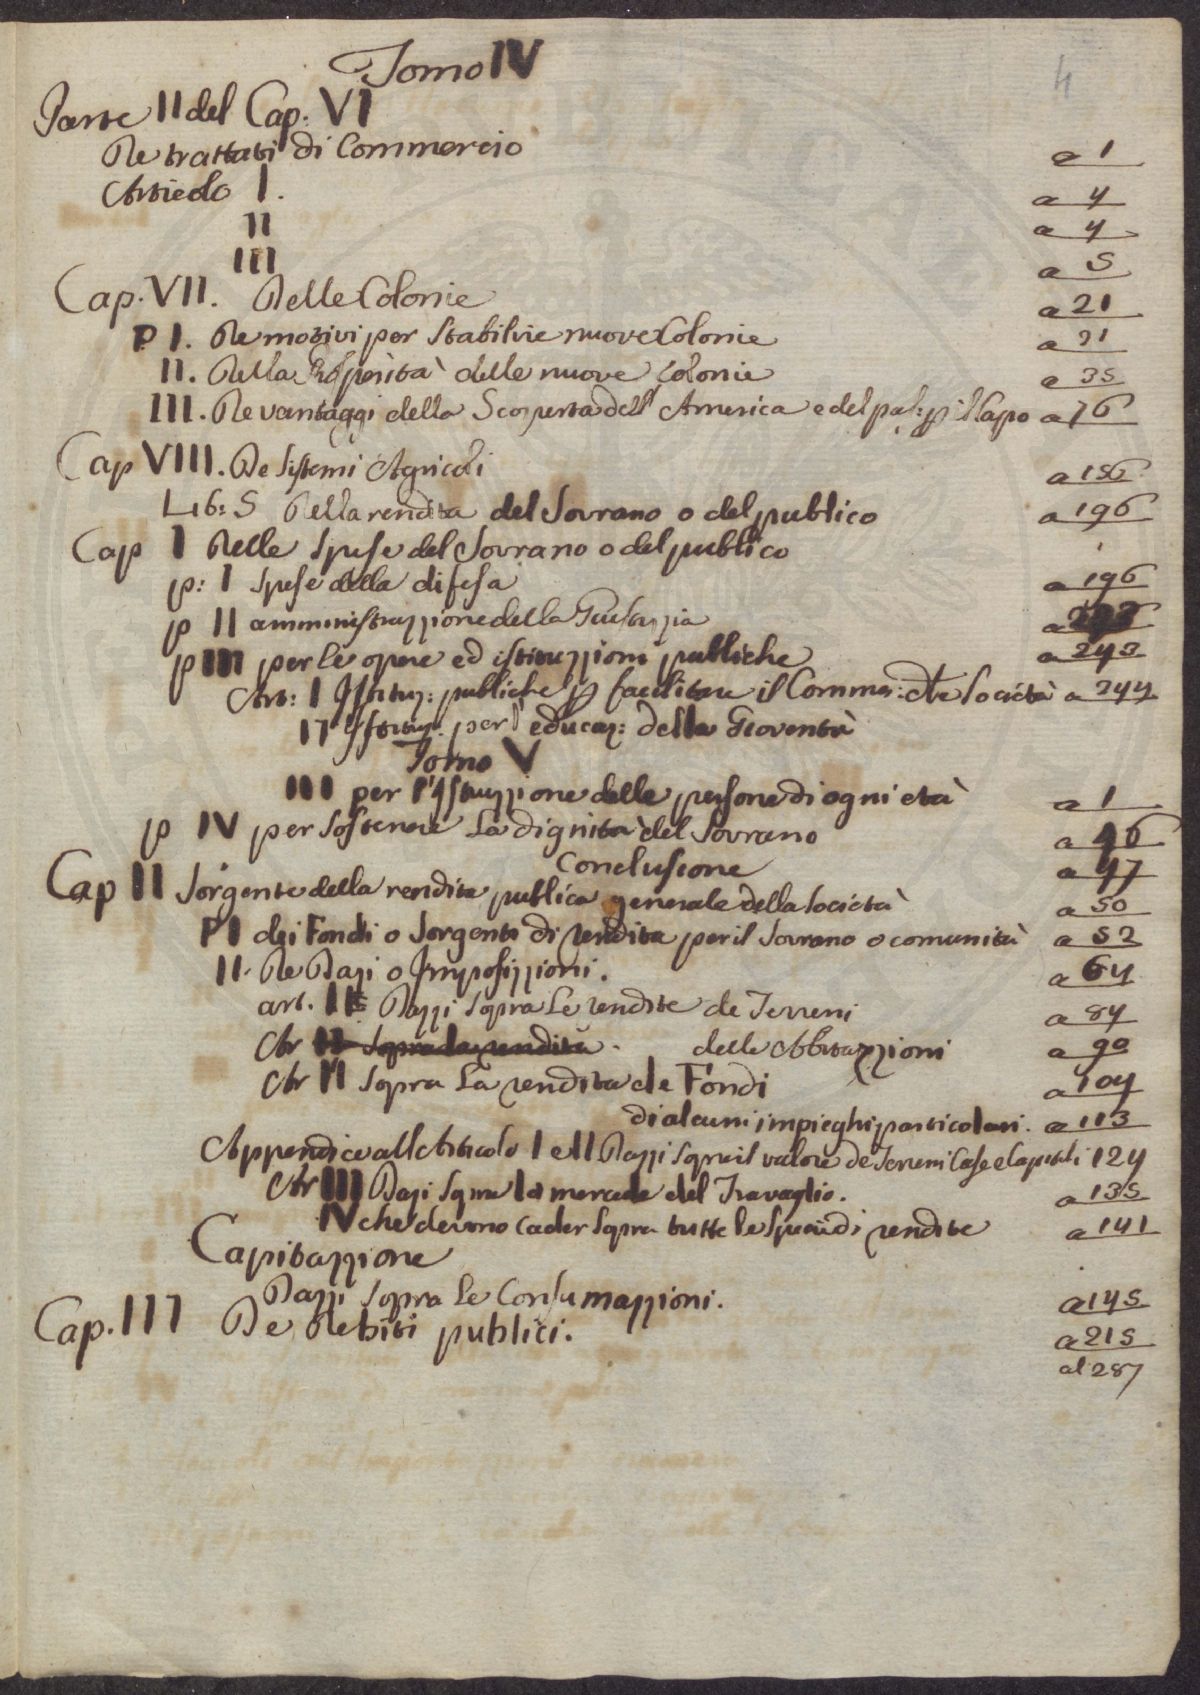 Tomo IV
4
Parte II del Cap. VI
De trattati di Commercio a 1
Articolo I. a 4
II a 4
III a 5
Cap. VII. Delle Colonie a 21
P I. De motivi per stabilire nuove Colonie a 21
II. Della Prosperità delle nuove Colonie a 35
III. De vantaggi della Scoperta dell'America e del pas: p il Capo a 76
Cap VIII. De sistemi Agricoli a 156
Lib: 5 Della rendita del Sovrano o del publico a 196
Cap I Delle spese del Sovrano o del publico
p: I spese della difesa a 196
p II amministrazzione della Giustizzia a
p III per le opere ed istituzzioni publiche a 243
Art: I Istituz: publiche p facilitare il Comm: de Società a 244
II Istituz: per l'educaz: della Gioventù
Tomo V
III per l'Istruzzione delle persone di ogni età a 1
p IV per sostenere la dignità del Sovrano a 46
Conclusione a 47
Cap II Sorgente della rendita publica generale della Società a 50
P I dei Fondi o Sorgenti di rendita per il Sovrano o comunità a 52
II. De Dazi o Imposizzioni. a 64
art. I Dazzi sopra le rendite de Terreni a 84
Ar II sopra la rendita. delle Abitazzioni a 90
Ar II sopra la rendita de Fondi a 104
di alcuni impieghi particolari. a 113
Appendice all'Articolo I e II Dazzi sopra il valore de Terreni Case e Capitali 124
Ar III Dazi sopra la mercede del Travaglio. a 135
IV che devono cader sopra tutte le specie di rendite a 141
Capitazzione
Dazzi sopra le Consumazzioni. a 145
Cap. III De Debiti publici. a 215
al 287